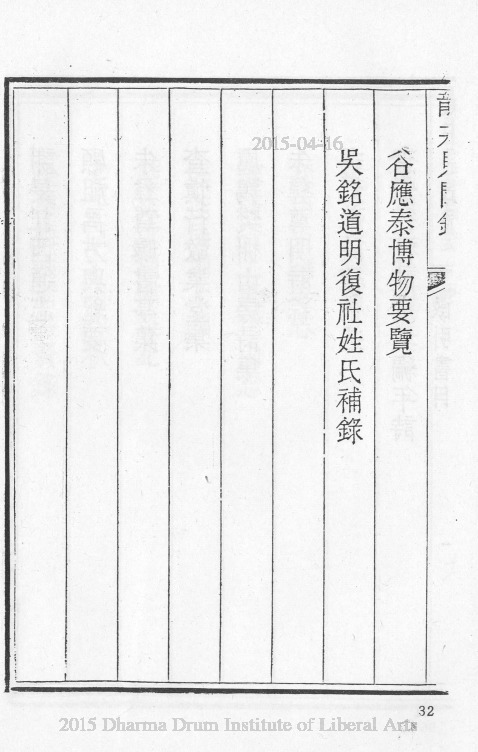 谷應泰博物要覽
吳銘道明復社姓氏補錄
2015-04-16
32
2015 Dharma Drum Institute of Liberal Arts